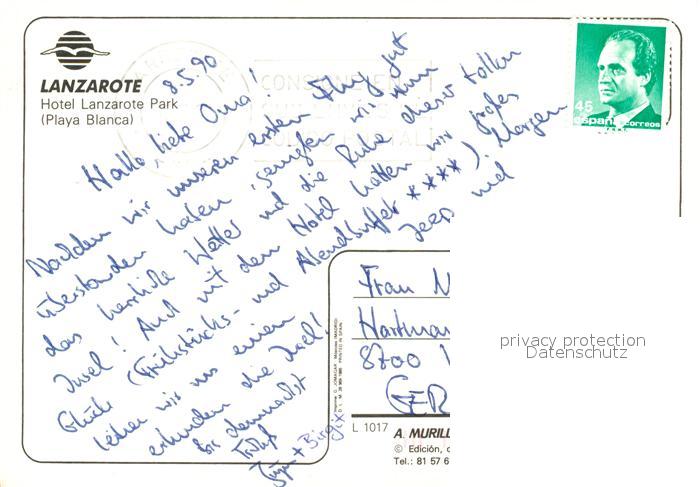 LANZAROTE
Hotel Lanzarote Park
(Playa Blanca)
8.5.90
Hallo, liebe Oma!
Nachdem wir unseren ersten Flug gut
überstanden haben, genießen wir nun
das herrliche Wetter und die Ruhe dieser tollen
Insel! Auch mit dem Hotel hatten wir großes
Glück (Frühstücks- und Abendbuffet ****). Morgen
leihen wir uns einen Jeep und
erkunden die Insel!
Bis demnächst
+ Birgit
45
españa
correos
Frau
8700
GER
L 1017
A. MURILL
© Edición,
Tel.: 81 57 6
privacy protection
Datenschutz